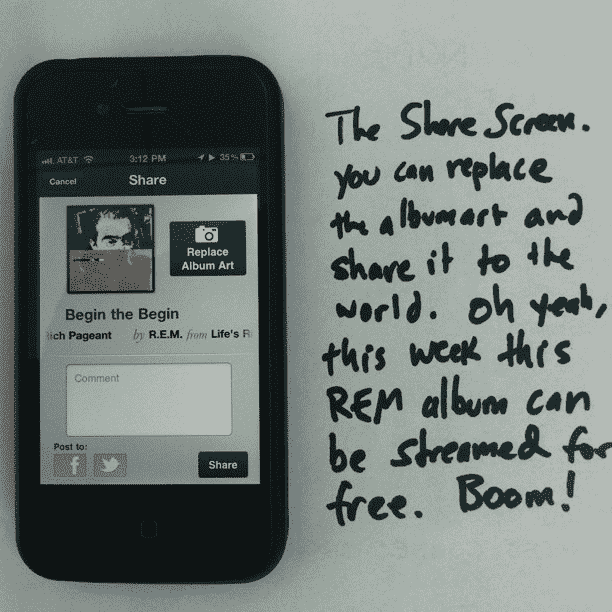 AT&T 3:12 PM 35%
Cancel Share
Replace
Album Art
Begin the Begin
ich Pageant by R.E.M. from Life's R
Comment
Post to:
f Share
The Share Screen.
you can replace
the album art and
share it to the
world. oh yeah,
this week this
REM album can
be streamed for
free. Boom!